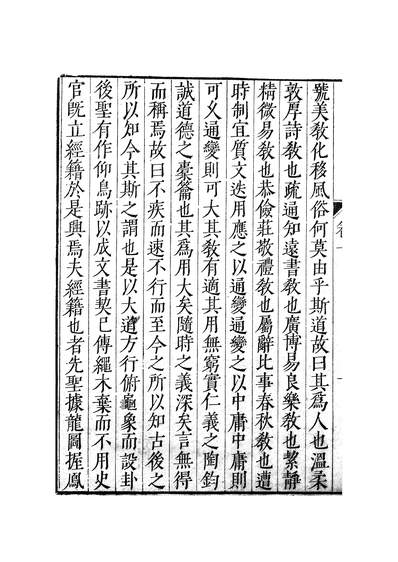 號美教化移風俗何莫由乎斯道故曰其爲人也溫柔
敦厚詩教也疏通知遠書教也廣博易良樂教也絜靜
精微易教也恭儉莊敬禮教也屬辭比事春秋教也遭
時制宜質文迭用應之以通變通變之以中庸中庸則
可久通變則可大其教有適其用無窮實仁義之陶鈞
誠道德之橐籥也其爲用大矣隨時之義深矣言無得
而稱焉故曰不疾而速不行而至今之所以知古後之
所以知今其斯之謂也是以大道方行俯龜象而設卦
後聖有作仰鳥跡以成文書契已傳繩木棄而不用史
官旣立經籍於是與焉夫經籍也者先聖據龍圖握鳳